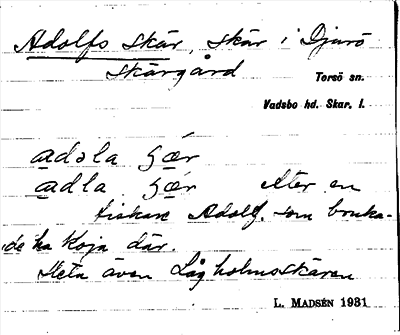 Adolfs skär, skär i Djurö
skärgård
Torsö sn.
Vadsbo hd. Skar. l.
adəla ʂær
adla ʂær efter en
fiskare Adolf, som bruka-
de ha koja där.
Heta även Lågholmsskären
L. MADSÉN 1931